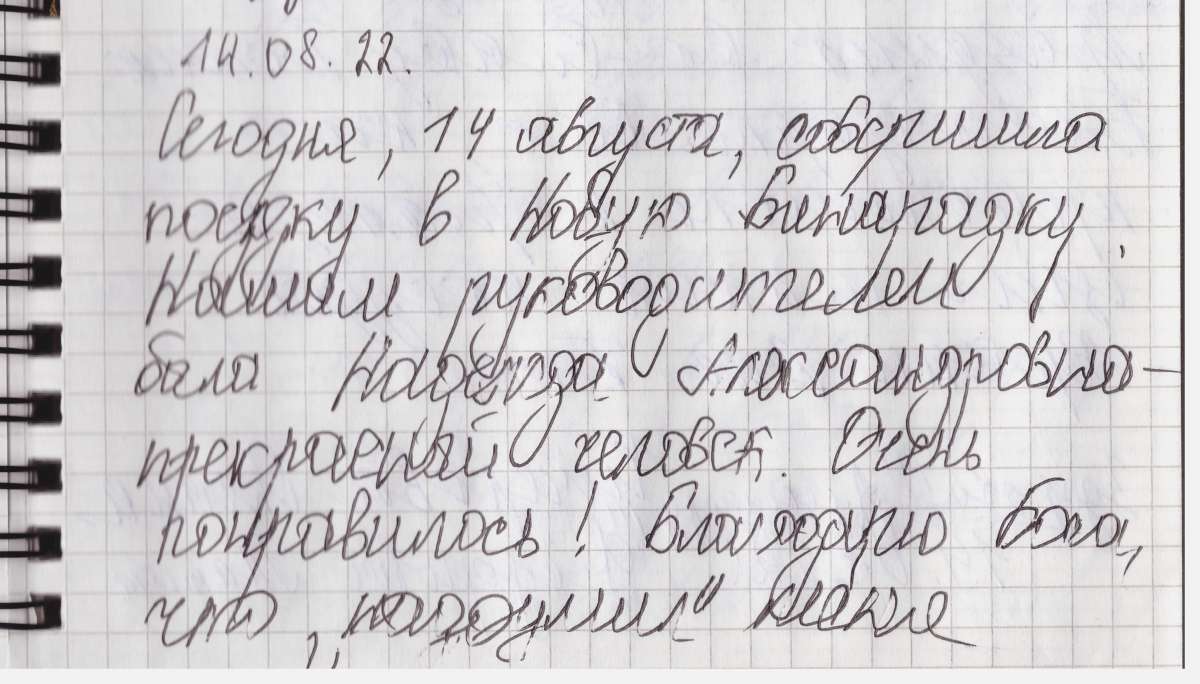 14.08.22.
Сегодня, 14 августа, совершила
поездку в Новую Бинарадку.
Нашим руководителем
была Надежда Александровна –
прекрасный человек. Очень
понравилось! Благодарю Бога,
что „надоумил" меня